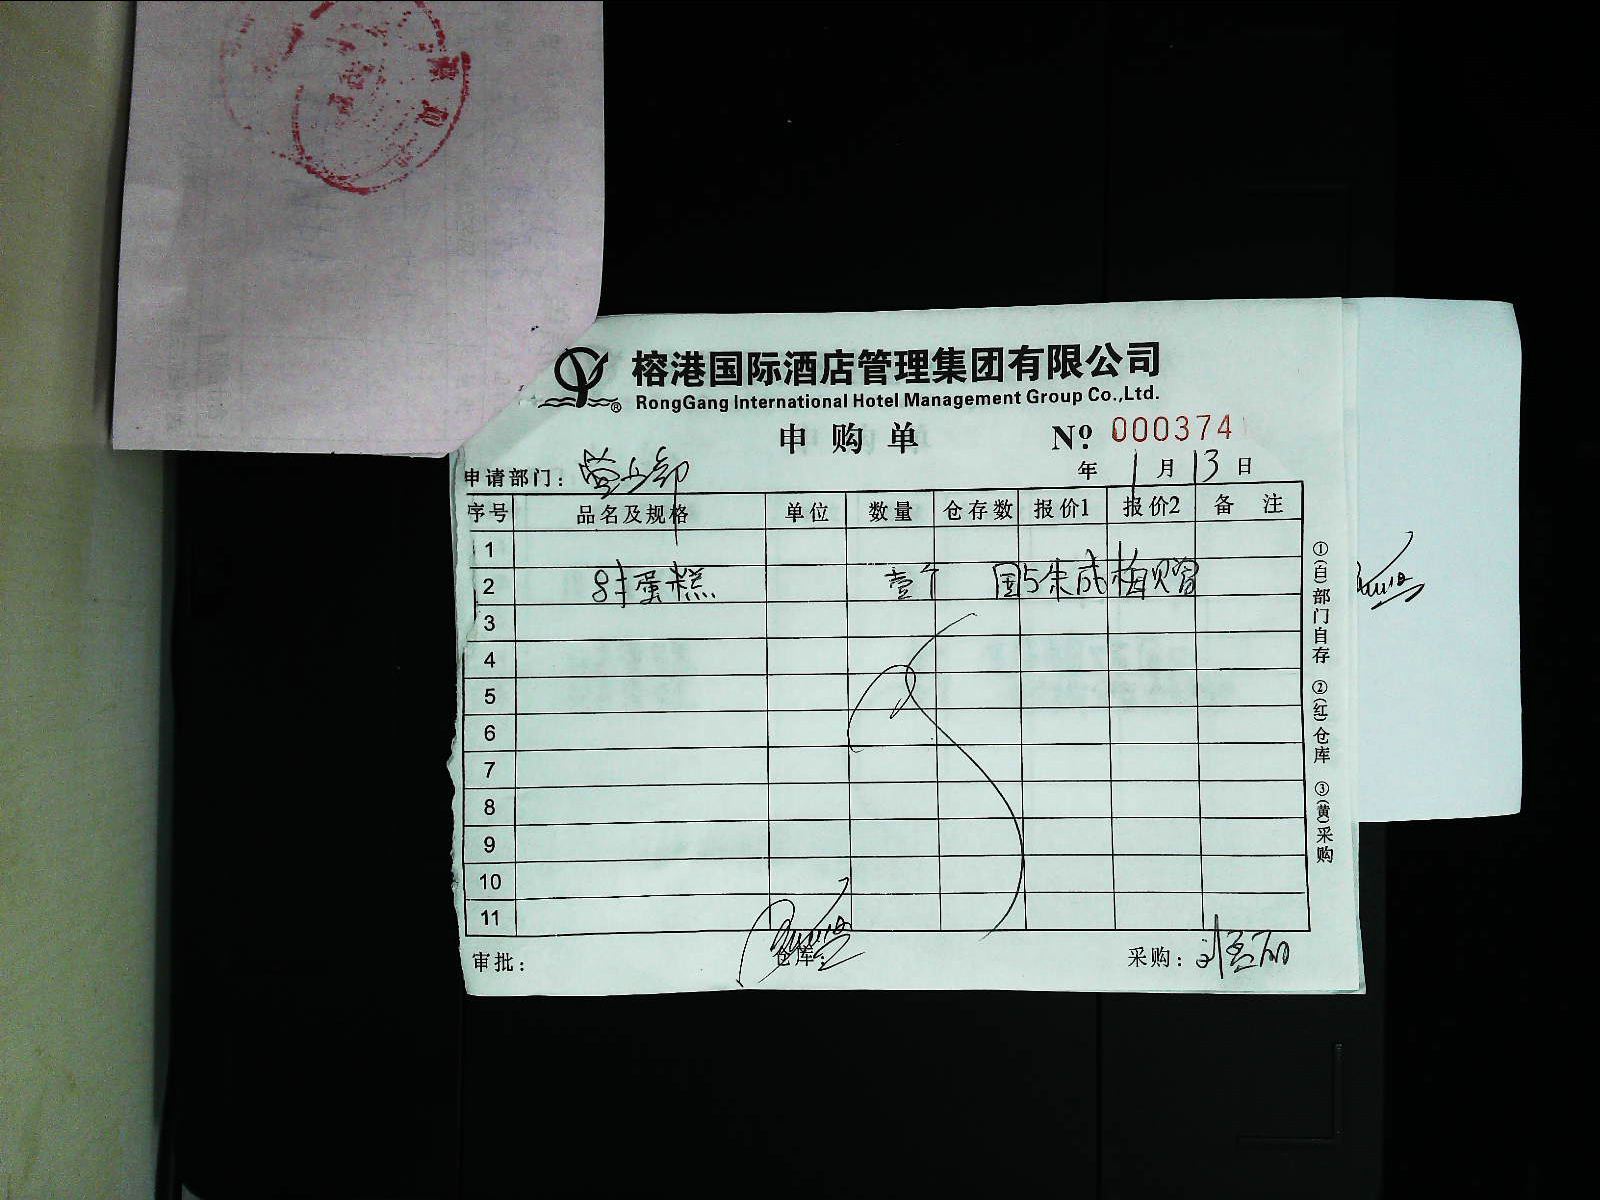 榕港国际酒店管理集团有限公司
RongGang International Hotel Management Group Co.,Ltd.
申购单 № 000374
申请部门：营业部 年 1 月 13 日
序号 品名及规格 单位 数量 仓存数 报价1 报价2 备注
1
2 8寸蛋糕 壹个 朱成梅
3
4
5
6
7
8
9
10
11
审批： 仓库： 采购：
①(自)部门自存 ②(红)仓库 ③(黄)采购